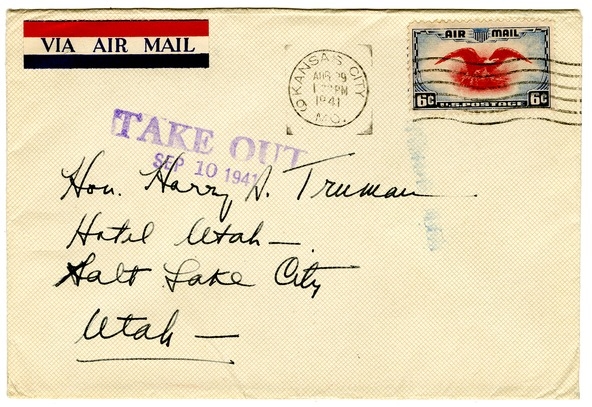 VIA AIR MAIL
KANSAS CITY
AUG 29
1941
MO.
AIR MAIL
6¢ U.S. POSTAGE 6¢
TAKE OUT
SEP 10 1941
Hon. Harry S. Truman
Hotel Utah —
Salt Lake City
Utah —